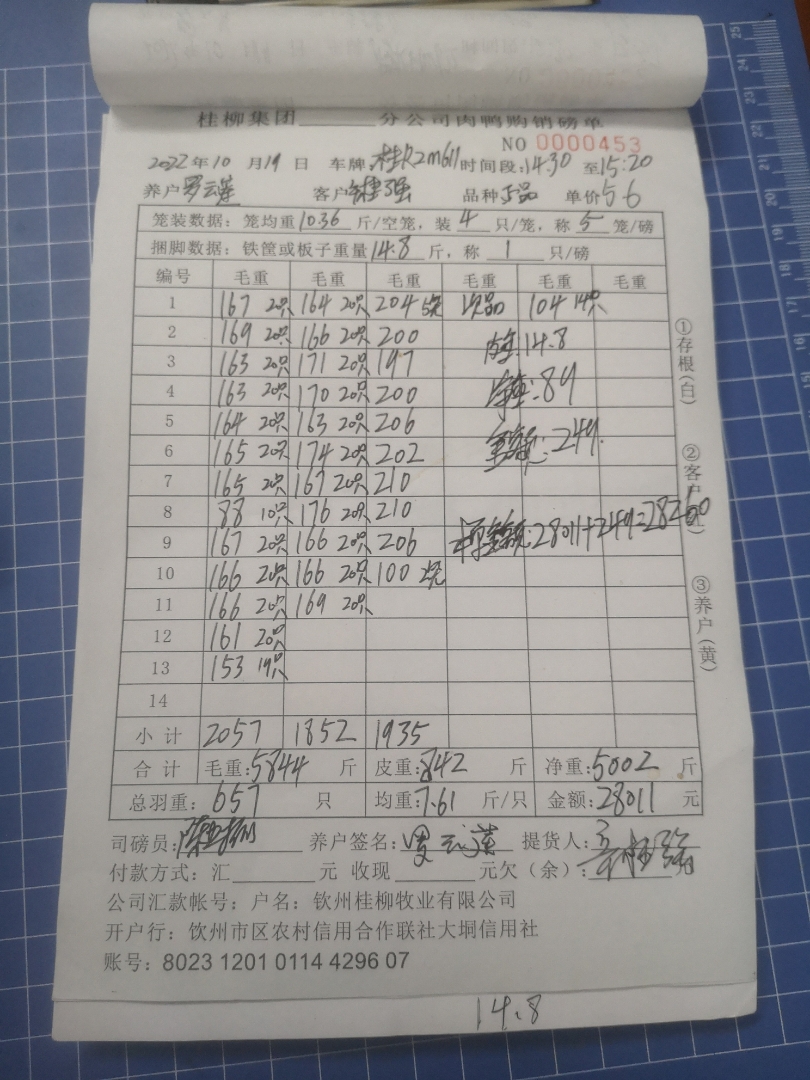 桂柳集团______分公司肉鸭购销磅单
NO 0000453
2022年10月19日 车牌:桂R2M611 时间段:14:30 至15:20
养户罗云莲 客户 强 品种 品 单价5.6
笼装数据:笼均重10.36斤/空笼,装4只/笼,称5笼/磅
捆脚数据:铁筐或板子重量14.8斤,称1只/磅
编号 毛重 毛重 毛重 毛重 毛重 毛重
1 167 20只 164 20只 204 次品 104 14只
2 169 20只 166 20只 200 皮重:14.8
3 163 20只 171 20只 197
4 163 20只 170 20只 200 净重:89
5 164 20只 163 20只 206
6 165 20只 174 20只 202 金额:249.
7 165 20只 167 20只 210
8 88 10只 176 20只 210
9 167 20只 166 20只 206 总金额:28011+249=28260
10 166 20只 166 20只 100
11 166 20只 169 20只
12 161 20只
13 153 19只
14
小计 2057 1852 1935
合计 毛重:5844 斤 皮重:842 斤 净重:5002 斤
总羽重:657 只 均重:7.61 斤/只 金额:28011 元
司磅员: 养户签名:罗云莲 提货人:
付款方式:汇______元 收现______元欠(余):
公司汇款帐号:户名:钦州桂柳牧业有限公司
开户行:钦州市区农村信用合作联社大垌信用社
账号:8023 1201 0114 4296 07
①存根(白)
②客户
③养户(黄)
14.8
25
24
23
22
21
20
19
18
17
16
15
14
13
12